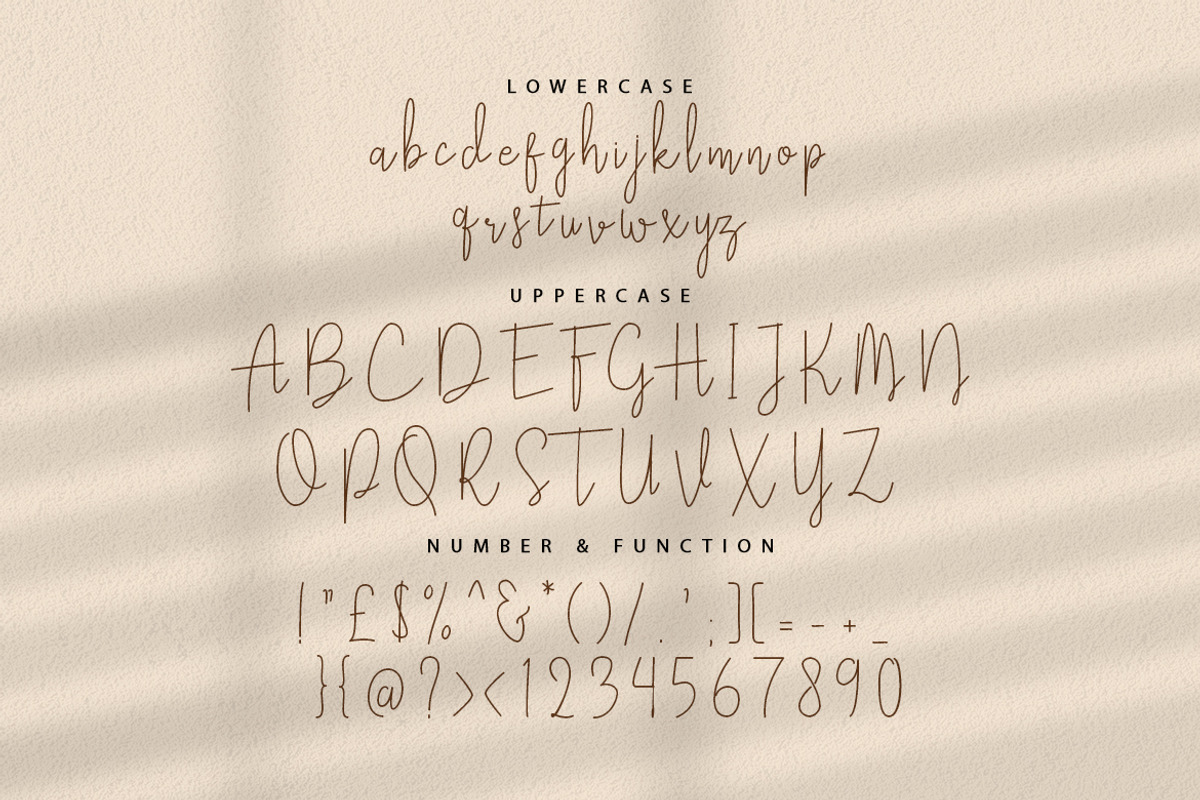 LOWERCASE
abcdefghijklmnop
qrstuvwxyz
UPPERCASE
ABCDEFGHIJKMN
OPQRSTUVXYZ
NUMBER & FUNCTION
!"£$%^&*()/.';][=-+_
}{@?><1234567890